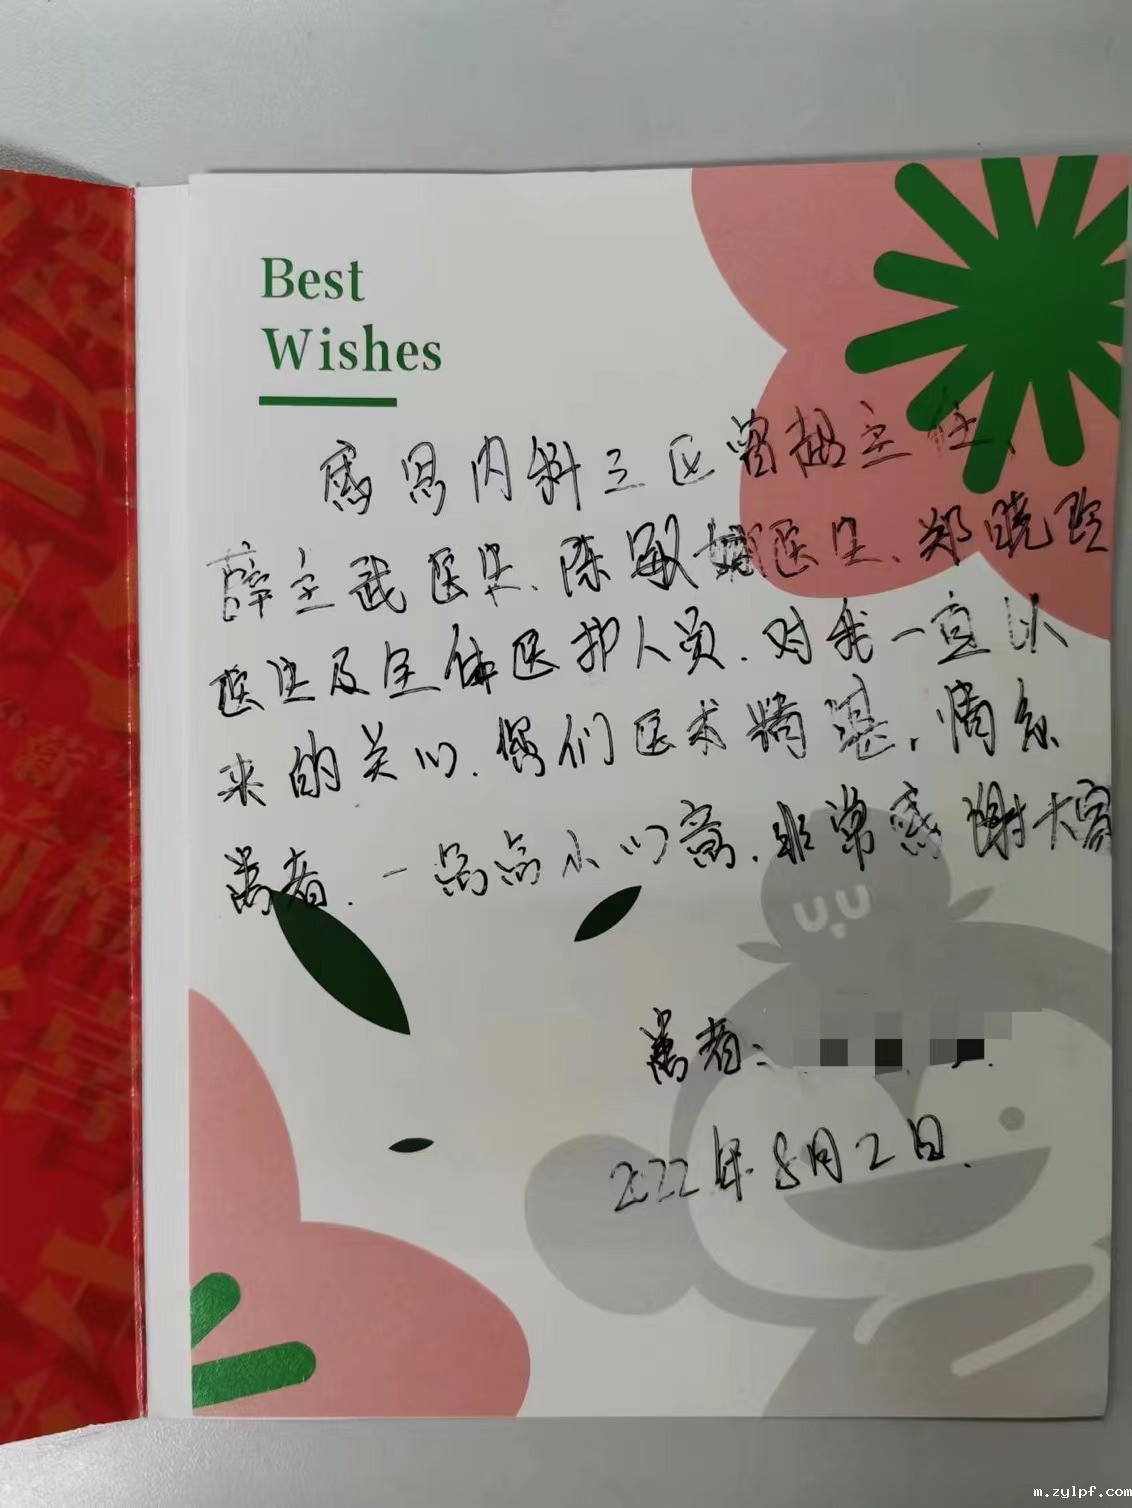 Best
Wishes
感恩内科三区曾超主任、
薛立武医生、陈敏娴医生、郑晓玲
医生及全体医护人员.对我一直以
来的关心.你们医术精湛,情系
患者.一点点小心意.非常感谢大家
患者:
2022年8月2日.
m.zylpf.com